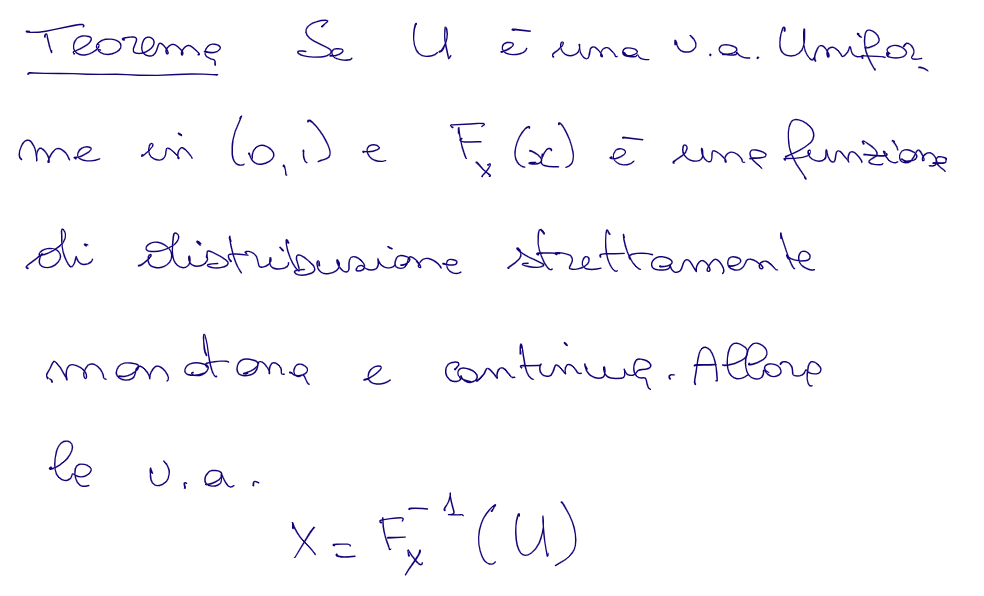 Teorema Se U è una v.a. Unifor
me in (0,1) e F_x(x) è una funzione
di distribuzione strettamente
monotona e continua. Allora
la v.a.
X = F_x^{-1}(U)